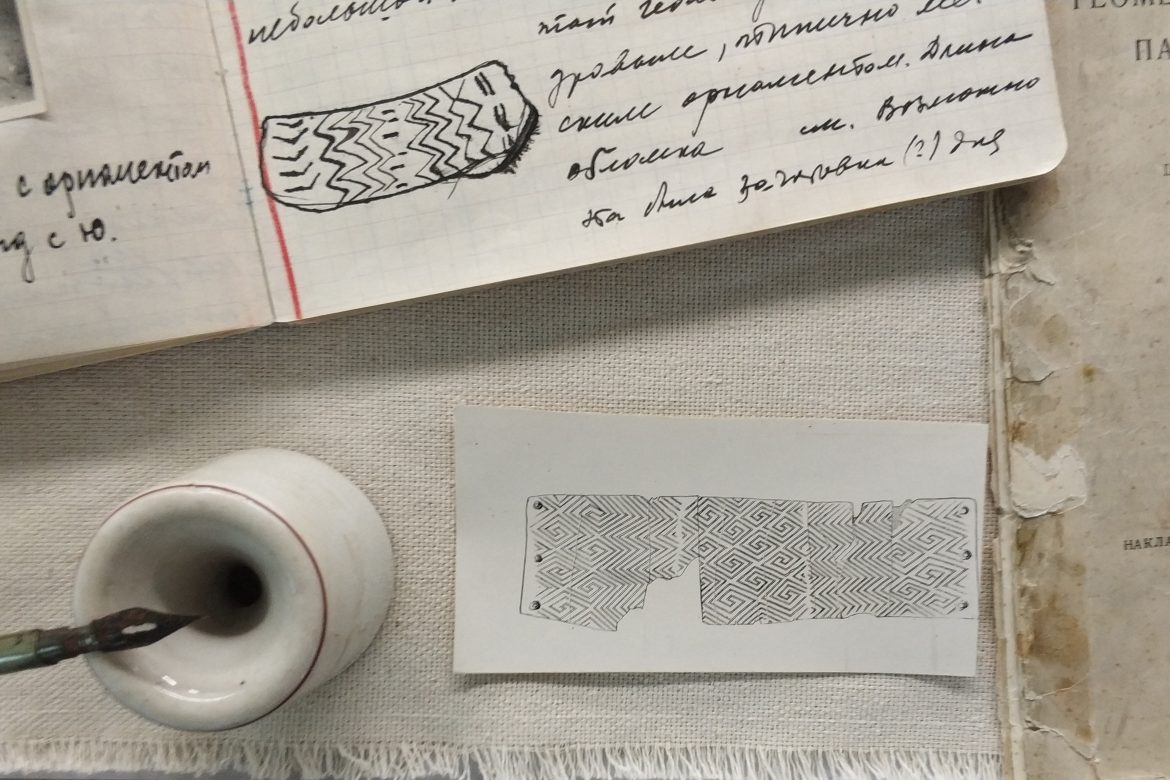 с орнаментом
с Ю.
небольшо
этот
уровые, типично
ским орнаментом. Длина
обломка см. Возможно
это была заготовка (?) для
ГЕОМЕ
ПА
НАКЛА